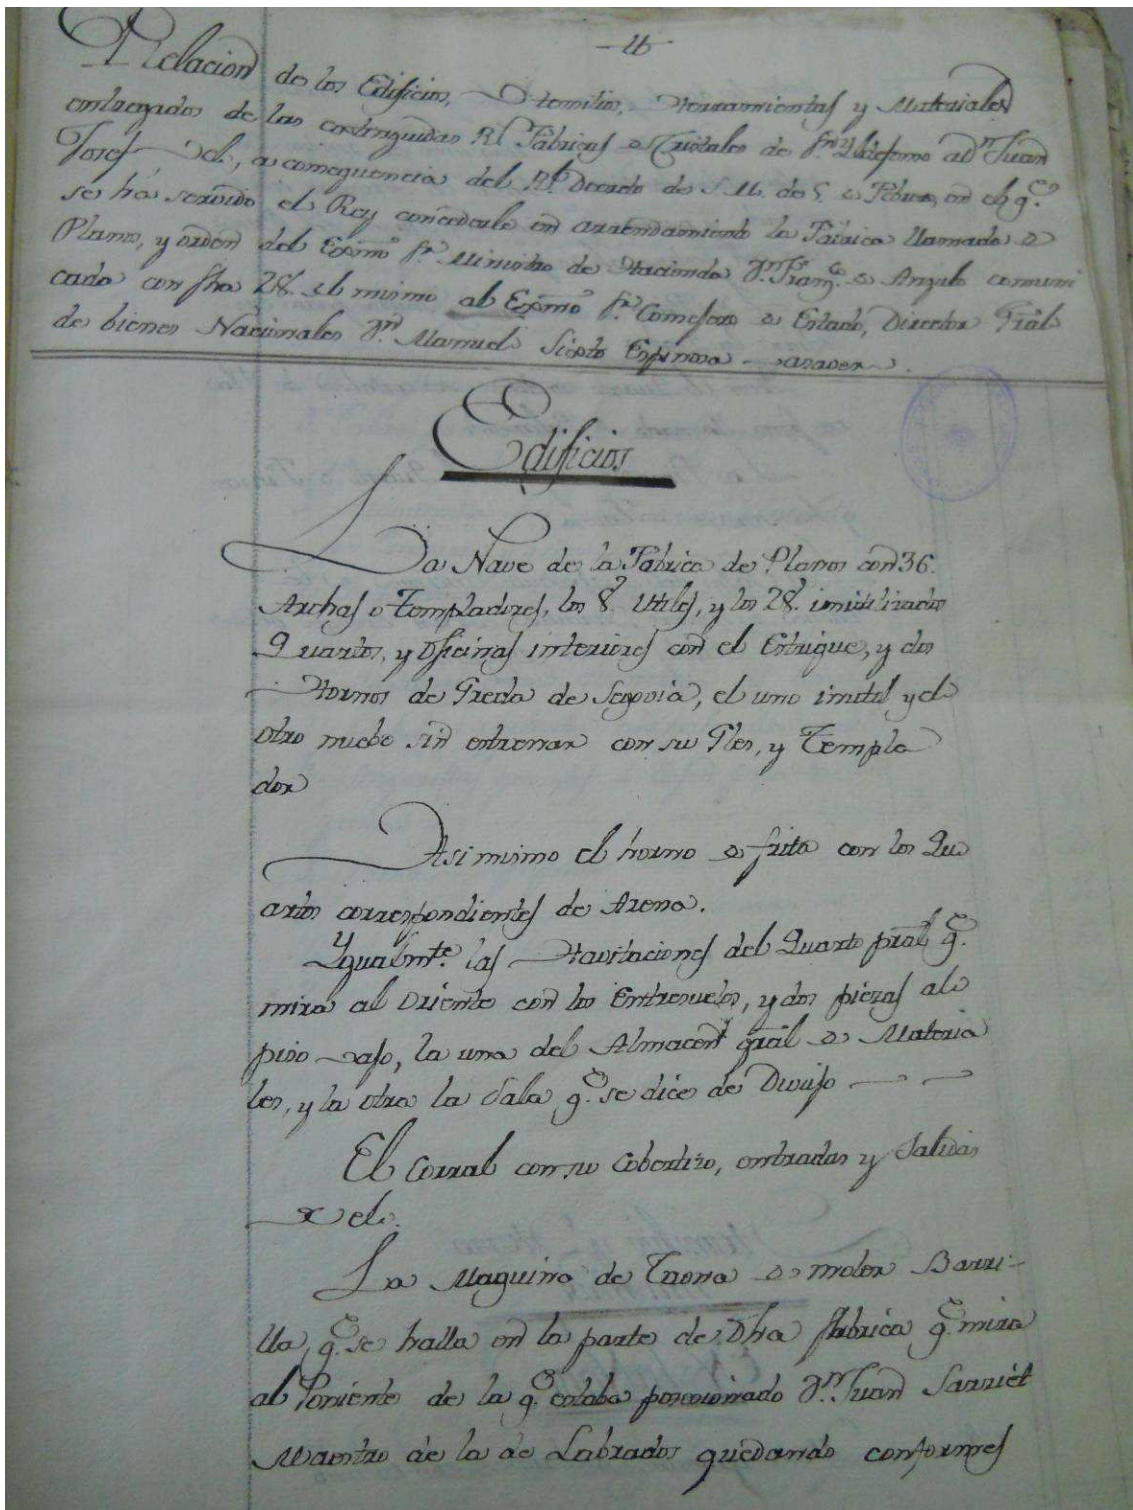 Relacion de los Edificios, Utensilios, Herramientas y Materiales
entregados de las extinguidas Rs. Fabricas de Cristales de Sn. Yldefonso a Dn. Juan
Josef a consequencia del Rl. Decreto de S. M. de 5. de Febrero, en el q.e
se há servido el Rey concederle en arrendamiento la Fabrica llamada de
Planos, y orden del Exsmo. Sr. Ministro de Hacienda Dn. Franco. de Angulo comuni
cada con fha 28. del mismo al Exsmo. Sr. Consejero de Estado, Director Gral
de bienes Nacionales Dn. Manuel Sixto Espinosa = a saver
Edificios
La Nave de la Fabrica de Planos con 36.
Archas o Templadores, los 8. Utiles, y los 28. inutilizados
Quartos, y Oficinas interiores con el Entrique, y dos
Hornos de Greda de Segovia, el uno inutil y el
otro nuebo sin estrenar con su y Templa
dor
Asi mismo el horno de frita con los Qu
artos correspondientes de Arena.
Ygualmte. las Havitaciones del Quarto pral q.e
mira al Oriente con los Entresuelos, y dos piezas al
piso vajo, la una del Almacen gral de Materia
les, y la otra la Sala q.e se dice de Divujo
El Corral con su Cobertizo, entradas y Salidas
de el.
La Maquina de Taona de moler Barri-
lla, q.e se halla en la parte de Dha fabrica q.e mira
al Poniente de la q.e estaba posesionado Dn. Juan Sarriét
Maestro de la de Labrados quedando conformes